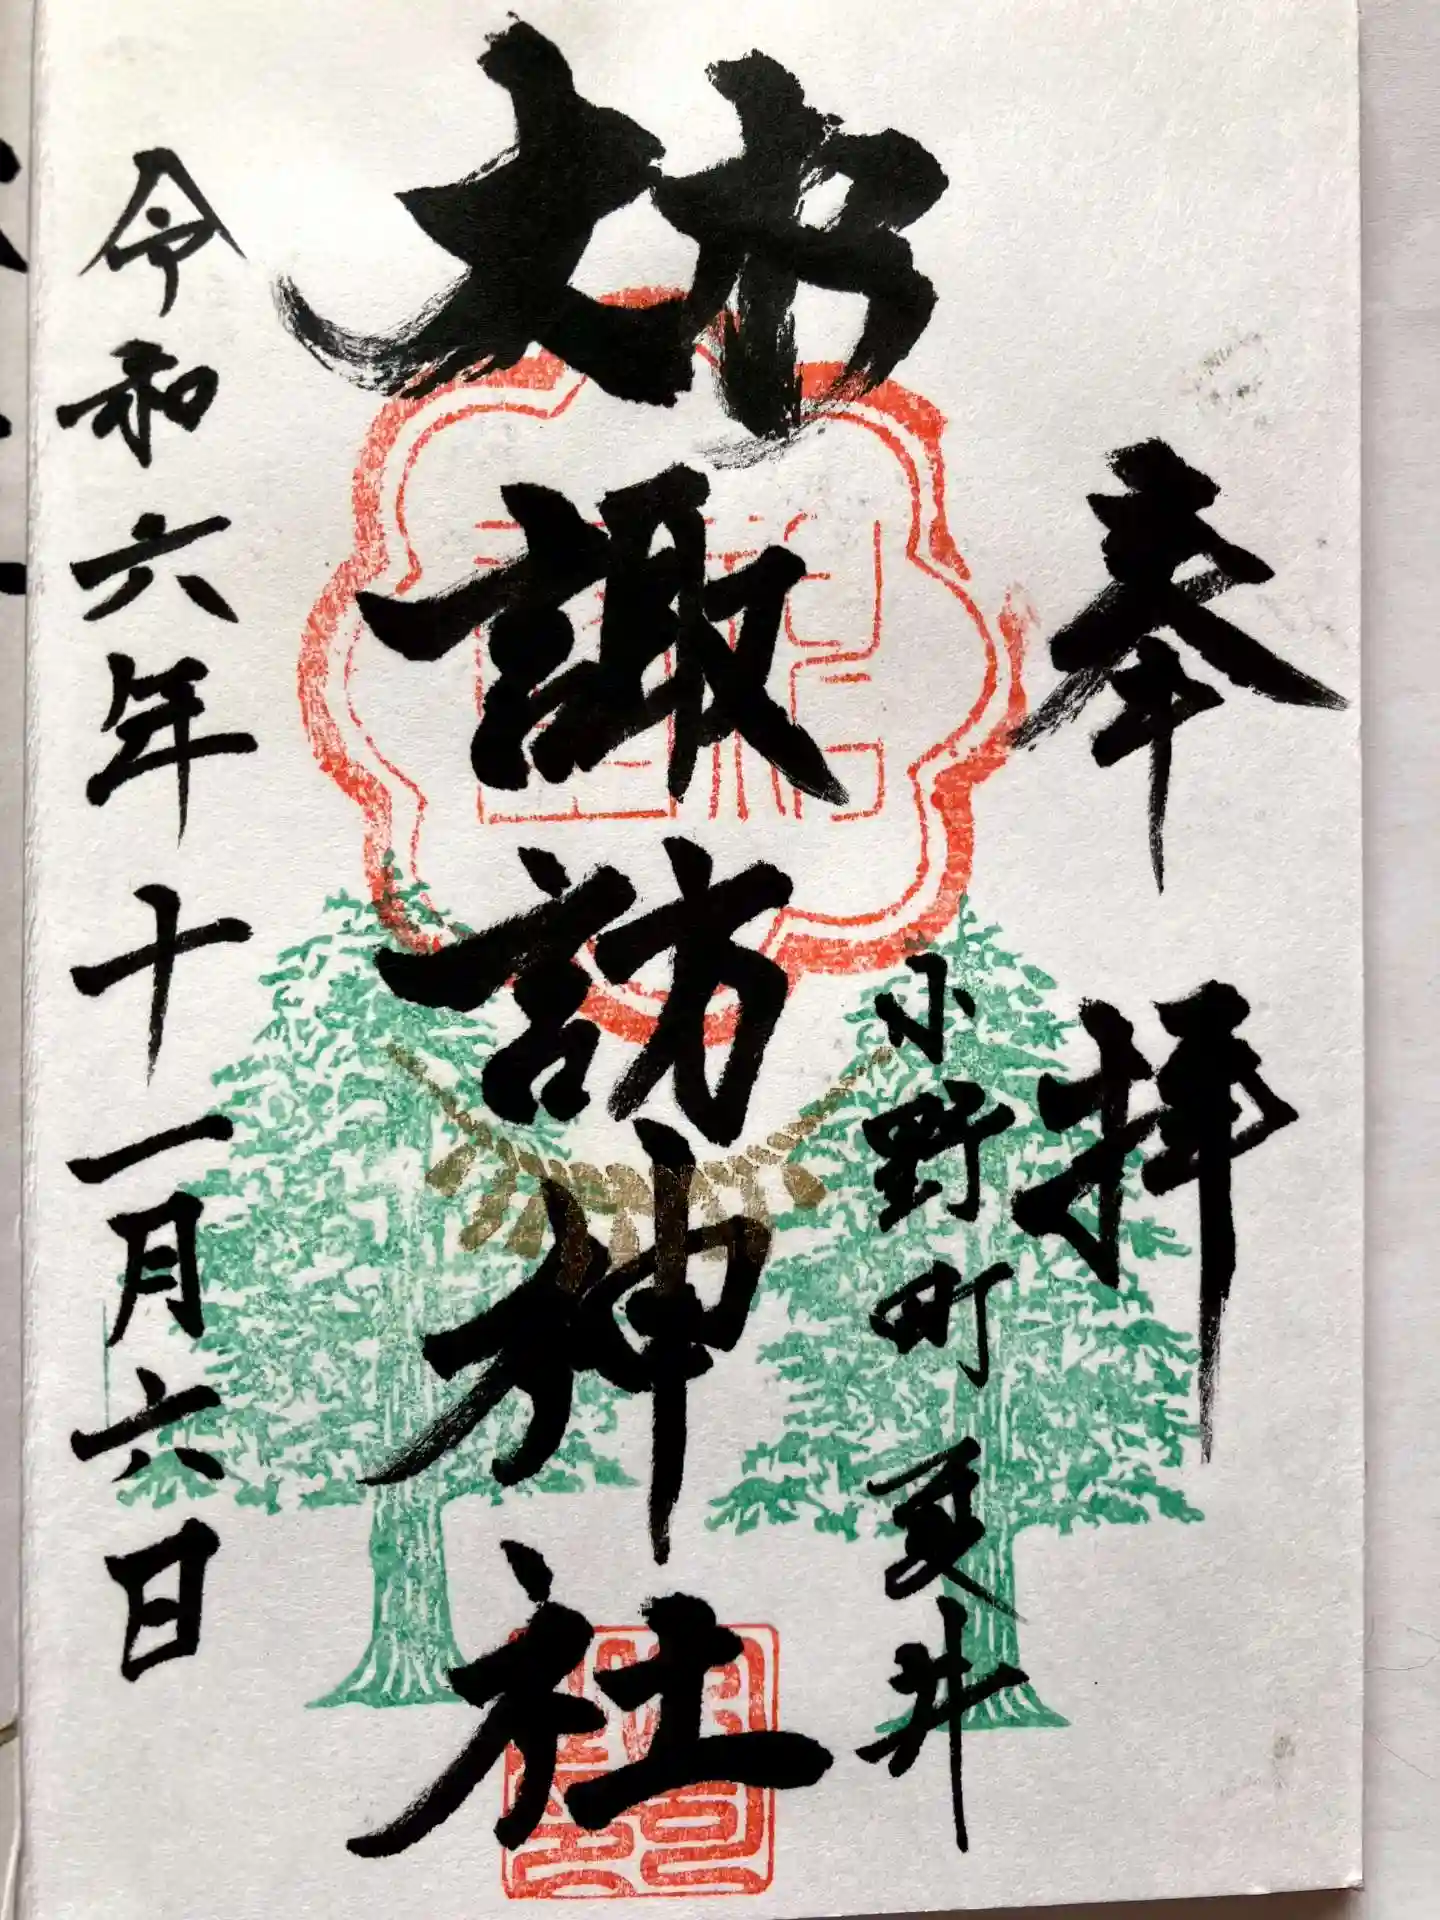 奉拝
小野町夏井
諏訪神社
令和六年十一月六日